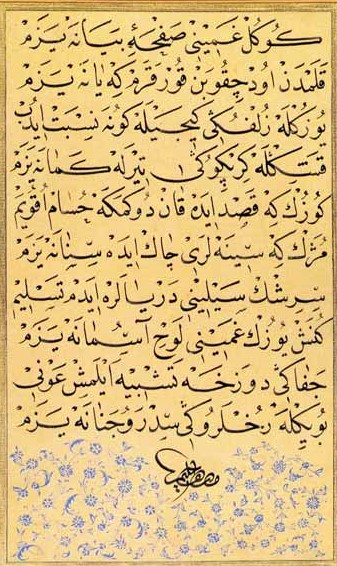 كوكل غمينى صفحۀ بيانه يزم
قلمدن اود چقوبن قورقرم كه يانه يزم
يوزكله زلفكى كيجيله كونه نسبت ايدب
قشكله كربكوكى تيرله كمانه يزم
كوزك كه قصد ايده قان دوكمكه حسام اقويم
مژك كه سينه لرى چاك ايده سنانه يزم
سرشك سيلينى دريالره ايدم تسليم
كنش يوزك غمينى لوح آسمانه يزم
جفاكى دوزخه تشبيه ايلمش عونى
بويكله رخلروكى سدر وجنانه يزم